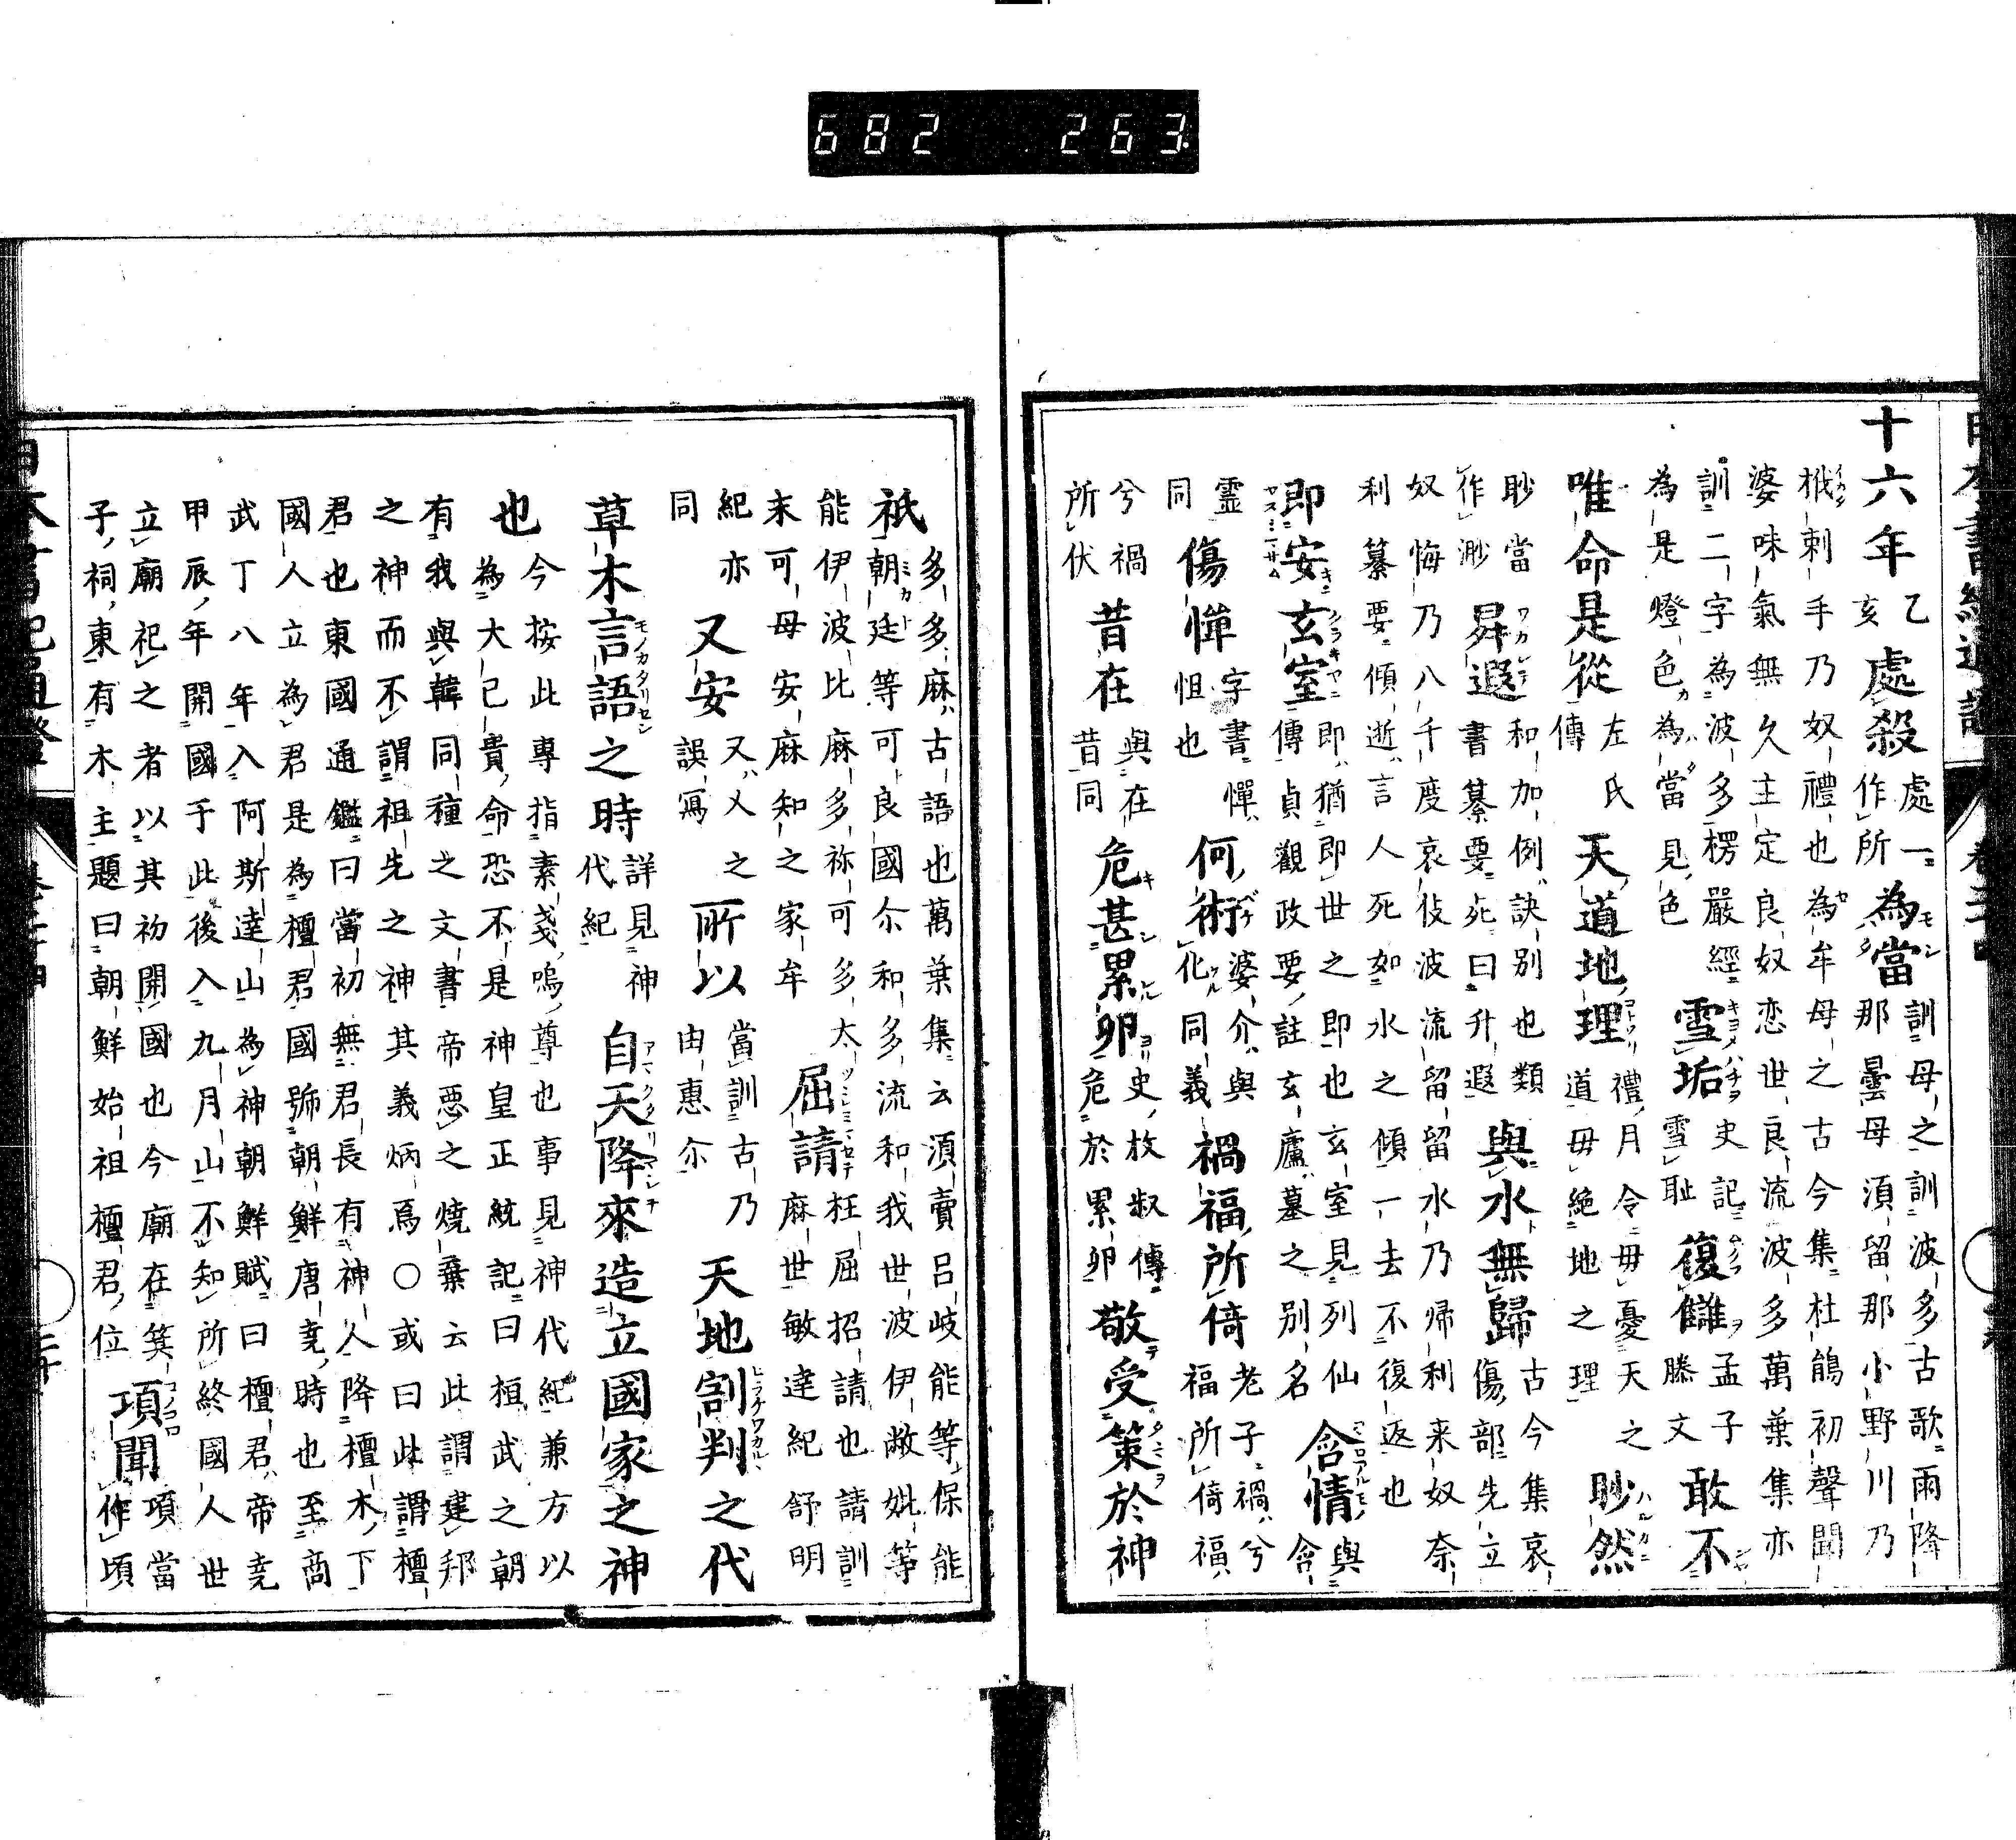 十六年乙亥處殺處一作所為當訓母之訓波多古歌雨降
那曇母湏留那小野川乃
檝刺手乃奴禮也為牟母之古今集杜鵑初聲聞
婆味氣無久主定良奴恋世良流波多萬葉集亦
訓二字為波多楞嚴經
為是燈色為當見色
雪垢史記雪耻復讎孟子滕文敢不
唯命是從左氏傳天道地理禮月令毋憂天之
道毋絶地之理
眇然
眇當作渺昇遐和加例訣別也類
書纂要死曰升遐
與水無歸古今集哀
傷部先立
奴悔乃八千度哀伎波流留水乃帰利来奴奈
利纂要傾逝言人死如水之傾一去不復返也
即安玄室即猶即世之即也玄室見列仙
傳貞觀政要註玄廬墓之別名
含情與含
霊同傷憚字書憚
怛也
何術婆介與
化同義
禍福所倚老子禍兮
福所倚福
兮禍
所伏
昔在與在
昔同
危甚累卵史枚叔傳
危於累卵
敬受策於神
祇多多麻古語也萬葉集云湏賣呂岐能等保能
朝廷等可良國尒和多流和我世波伊敝妣等
能伊波比麻多祢可多太
末可母安麻知之家牟
屈請枉屈招請也請訓
麻世敏達紀舒明
紀亦
同
又安又乂之
誤寫
所以當訓古乃
由惠尒
天地割判之代
草木言語之時詳見神
代紀
自天降來造立國家之神
也今按此專指素戔嗚尊也事見神代紀兼方以
為大己貴命恐不是神皇正統記曰桓武之朝
有我與韓同種之文書帝悪之燒棄云此謂建邦
之神而不謂祖先之神其義炳焉○或曰此謂檀
君也東國通鑑曰當初無君長有神人降檀木下
國人立為君是為檀君國號朝鮮唐堯時也至商
武丁八年入阿斯達山為神朝鮮賦曰檀君帝堯
甲辰年開國于此後入九月山不知所終國人世
立廟祀之者以其初開國也今廟在箕
子祠東有木主題曰朝鮮始祖檀君位
項聞項當
作頃
682 263